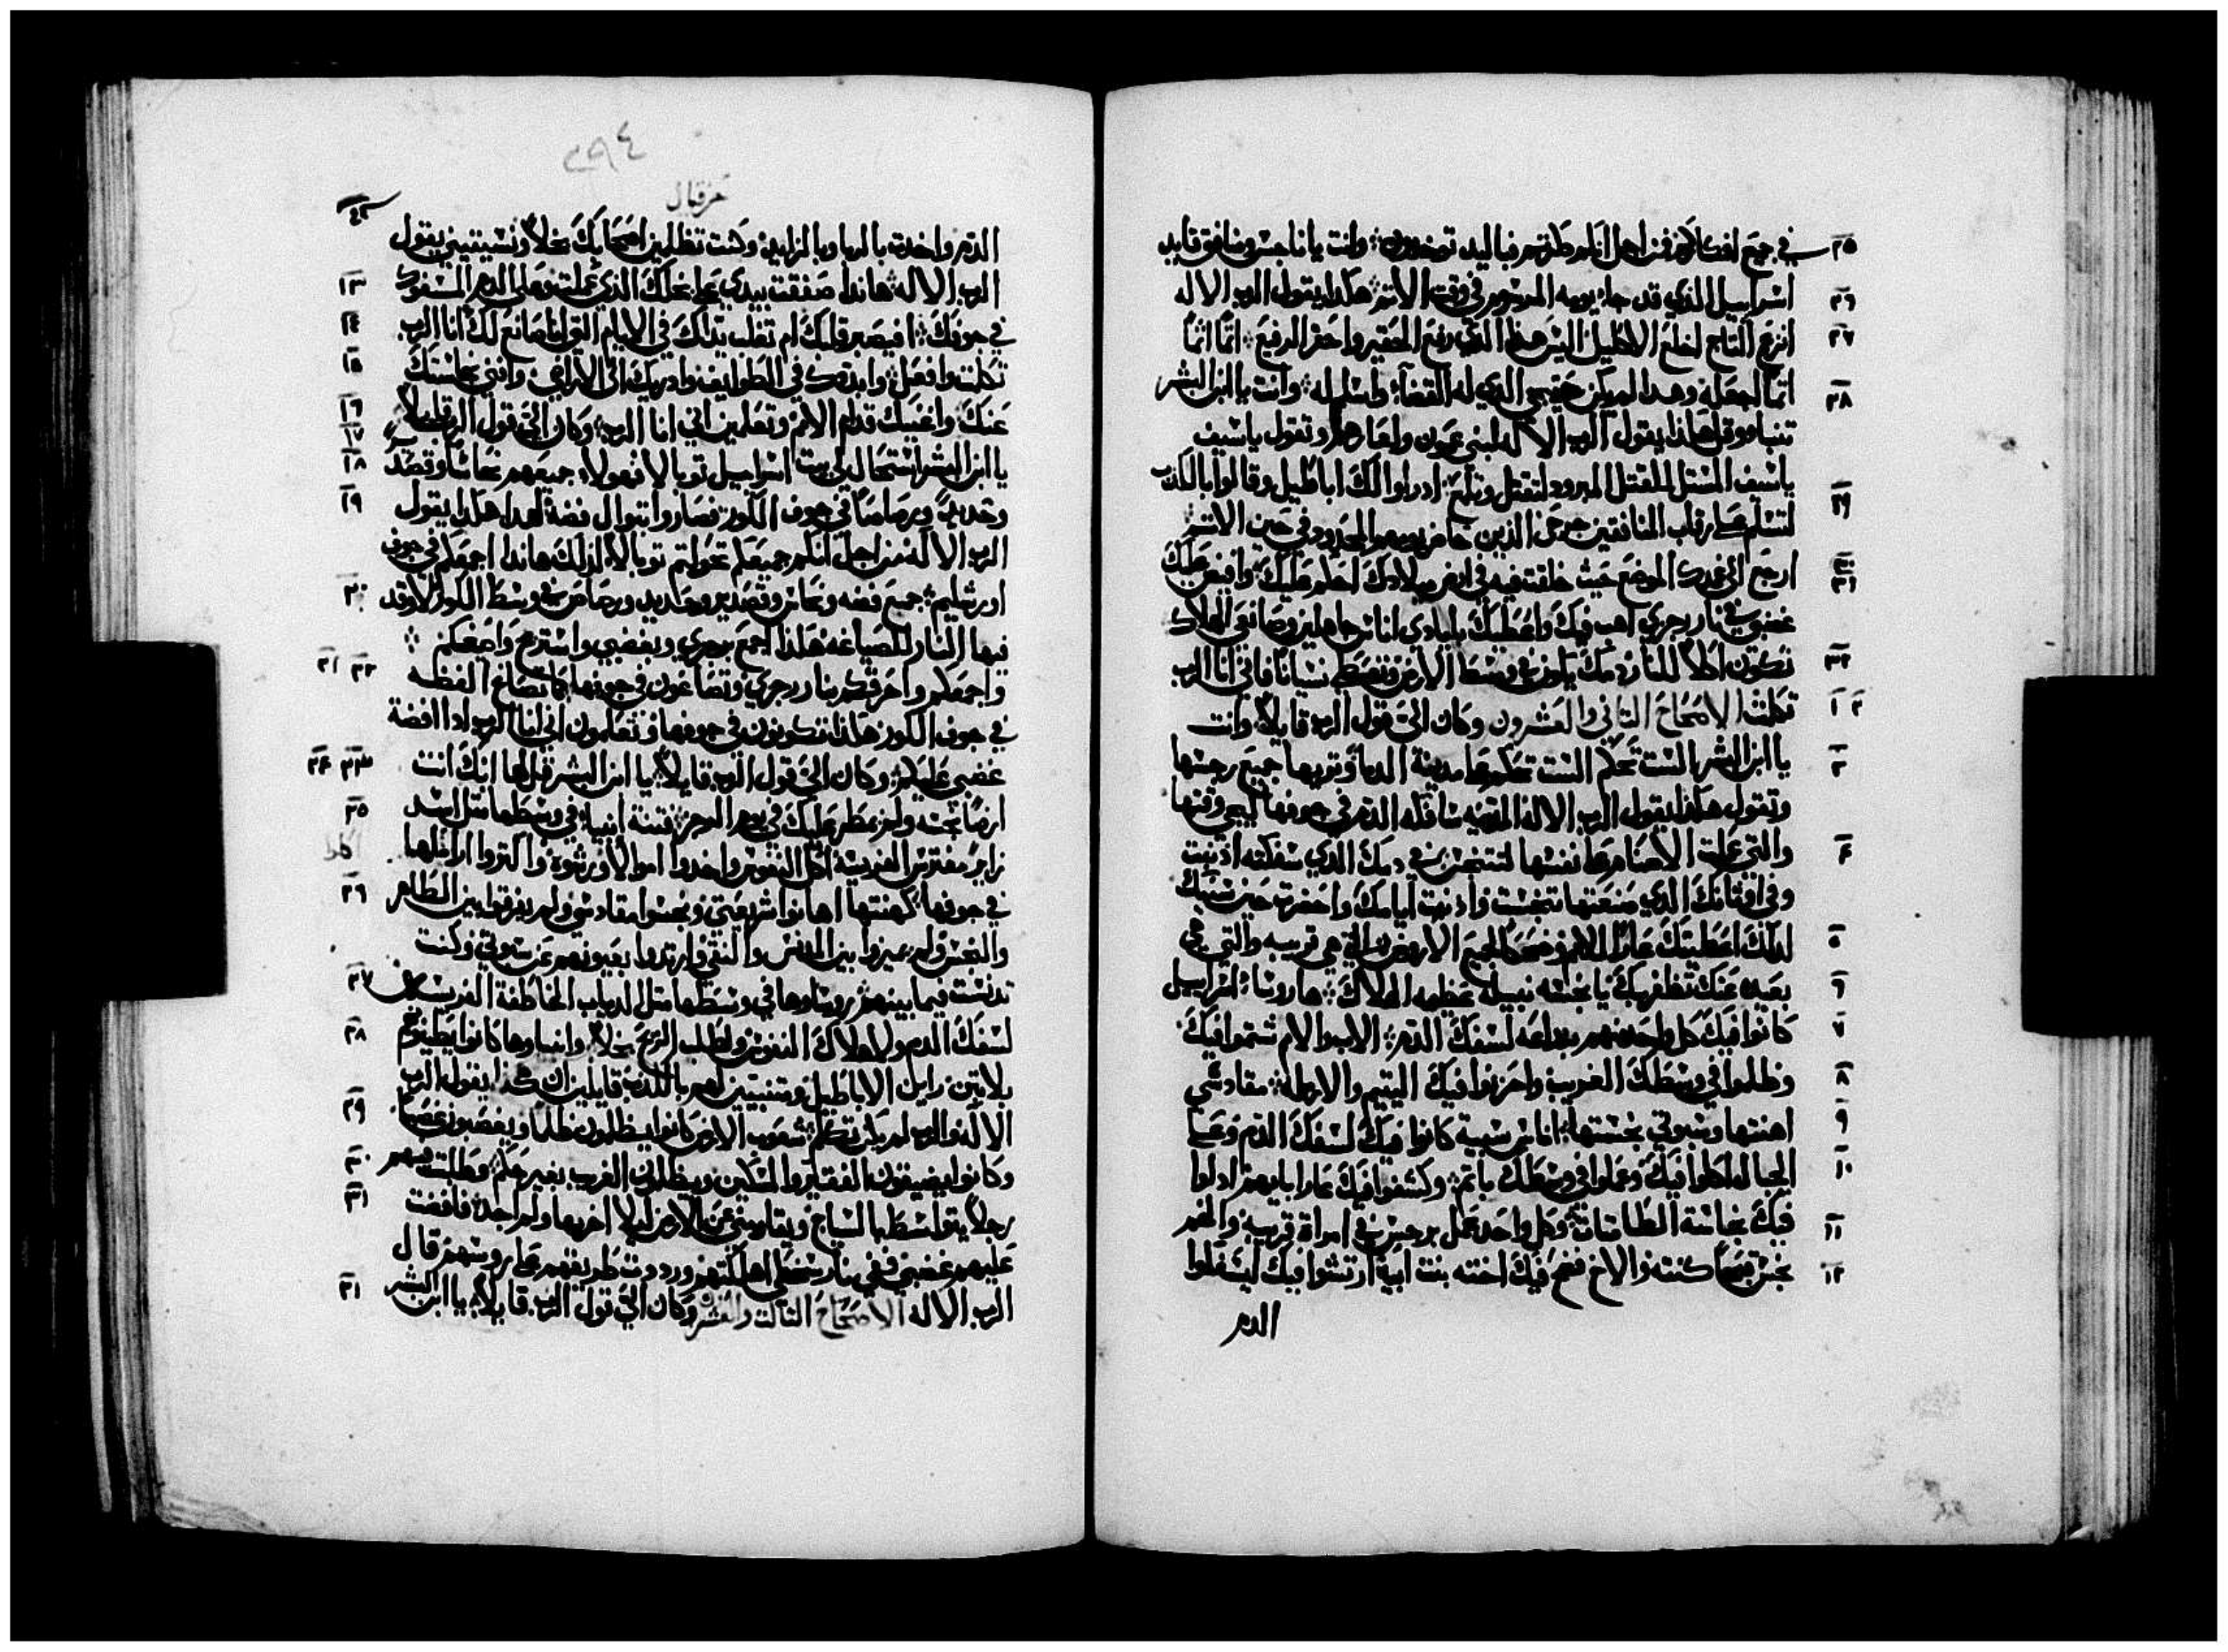 في جميع افكاركم فمن اجل انكم ذكرتم فباليد توخدون وانت يا ناجس ومنافق قايد ٢٥
اسراييل الذي قد جا يومه المرسوم في وقت الاتم هكدا يقول الرب الاله ٢٦
انزع التاج اخلع الاكليل اليس هذا الذي رفع الحقير واحقر الرفيع اتمًا اتمًا ٢٧
اتمًا اجعله وهدا لم يكن حتى يجي الذي له القضآ واسلم له وانت يا ابن البشر ٢٨
تنبا وقل هكذا يقول الرب الاله لبني عمون ولعارهم وتقول يا سيف
يا سيف المستل للقتل المبرود لتقتل وتلمع ادراوا لك اباطيل وقالوا بالكدب ٢٩
لتسلم على رقاب المنافقين جرحى الذين حاضر يومهم المحدود في حين الاتم
ارجع الى غمدك الموضع حيث خلقت فيه في ارض ميلادك احكم عليك وافيض عليك ٣٠ ٣١
غضبي في نار رجزي اهب فيك واعطيك بايادي اناس جاهلين وصانعي الهلاك
تكون اكلاً للنار دمك يكون في وسط الارض وتعطى نسيانًا فاني انا الرب ٣٢
تكلمت الاصحاح التاني والعشرون وكان الىّ قول الرب قايلاً وانت ١ ٢
يا ابن البشر الست تحكم الست تحكم على مدينة الدما وتريها جميع رجسها ٣
وتقول هكذا يقول الرب الاله المدينه سافكه الدم في جوفها ليجي وقتها
والتي عملت الاصنام على نفسها لتتنجس في دمك الدي سفكته ادنبت ٤
وفي اوتانك الدي صنعتها تنجست وادنيت ايامك واحضرت حين سنينك
لدلك اعطيتك عارًا للامم وضحكا لجميع الارض التي هي قريبه والتي هي ٥
بعيده عنك تظفر بك يا نجسه نبيله عظيمه الهلاك ها روسا اسراييل ٦
كانوا فيك كل واحد منهم بدراعه لسفك الدم الاب والام شتموا فيك ٧
وظلموا في وسطك الغريب واحزنوا فيك اليتيم والارمله مقادسي ٨
اهنتها وسبوتي نجستها اناس سهية كانوا فيك لسفك الدم وعلى ٩
الجبال اكلوا فيك وعملوا في وسطك باتم وكشفوا فيك عار ابايهم ادلوا ١٠
فيك نجاسة الطامتات وكل واحد عمل برجس في امراة قريبه والحم ١١
نجس قبيحًا كنته والاخ فضح فيك اخته بنت ابيه ارتشوا فيك ليسفكوا ١٢
الدم
٢٩٤
حزقيال
الدم واخدت بالربا وبالمزايد وكنت تظلمين اصحابك بخلاً ونسيتيني يقول
الرب الاله هاندا صفقت بيدي على بخلك الذي عملت وعلى الدم المسفوك ١٣
في جوفك افيصبر قلبك ام تغلب يداك في الايام التي انا صانع لك انا الرب ١٤
تكلمت وافعل وابددك في الطوايف وادريك الى الاراضي وافني نجاستك ١٥
عنك واغنيك قدام الامم وتعلمين اني انا الرب وكان الىّ قول الرب قايلاً ١٦ ١٧
يا ابن البشر استحال لي بيت اسراييل توبالا فهولا جميعهم نحاسًا وقصديرً ١٨
وحديدً ورصاصًا في جوف الكور فصاروا توبال فضة لهدا هكدا يقول ١٩
الرب الاله من اجل انكم جميعكم تحولتم توبالاً لدلك هاندا اجمعكم في جوف
اورشليم جميع فضه ونحاس وقصدير وحديد ورصاص في وسط الكور لاوقد ٢٠
فيها النار للصياغه هكذا اجمع برجزي وبغضبي واستريح واصفكم
واجمعكم واحرقكم بنار رجزي وتصاغون في جوفها كما تصاغ الفظه ٢١ ٢٢
في جوف الكور هكذا تكونون في جوفها وتعلمون اني انا الرب ادا افضة
غضبي عليكم وكان الىّ قول الرب قايلاً يا ابن البشر قل لها انك انت ٢٣ ٢٤
ارضًا نجسه ولم يمطر عليك في يوم الرجز فتنة انبيا في وسطها متل اسد ٢٥
زاير مفترس الفريسة اكل النفوس واخدوا اموالا ورشوة واكتروا اراملها
في جوفها كهنتها اهانوا شريعتي ونجسوا مقادسي ولم يفرقوا بين الطاهر ٢٦
والنجس ولم يميزوا بين الدنس والنقي وارتدوا بعيونهم عن سبوتي وكنت
تدنست فيما بينهم روساوها في وسطها متل الدياب الخاطفة الفريسه ٢٧
لسفك الدم ولاهلاك النفوس ولطلب الربح بخلاً وانبياوها كانوا يطينوهم ٢٨
بلا تبن رايين الاباطيل ومتنبيين لهم بالكدب قايلين ان هكذا يقول الرب
الاله والرب لم يكن تكلم شعوب الارض كانوا يظلمون ظلمًا ويغصبون غصبًا ٢٩
وكانوا يضيقون الفقير والمسكين ويظلمون الغريب بغير حكم وطلبت منهم ٣٠
رجلاً يتواسط بالسياج ويقاومني عن الارض ليلا اخربها ولم اجد فافضت ٣١
عليهم غضبي ففي نار سخطي اهلكتهم ورددت طريقهم على روسهم قال
الرب الاله الاصحاح التالت والعشرون وكان الىّ قول الرب قايلاً يا ابن البشر